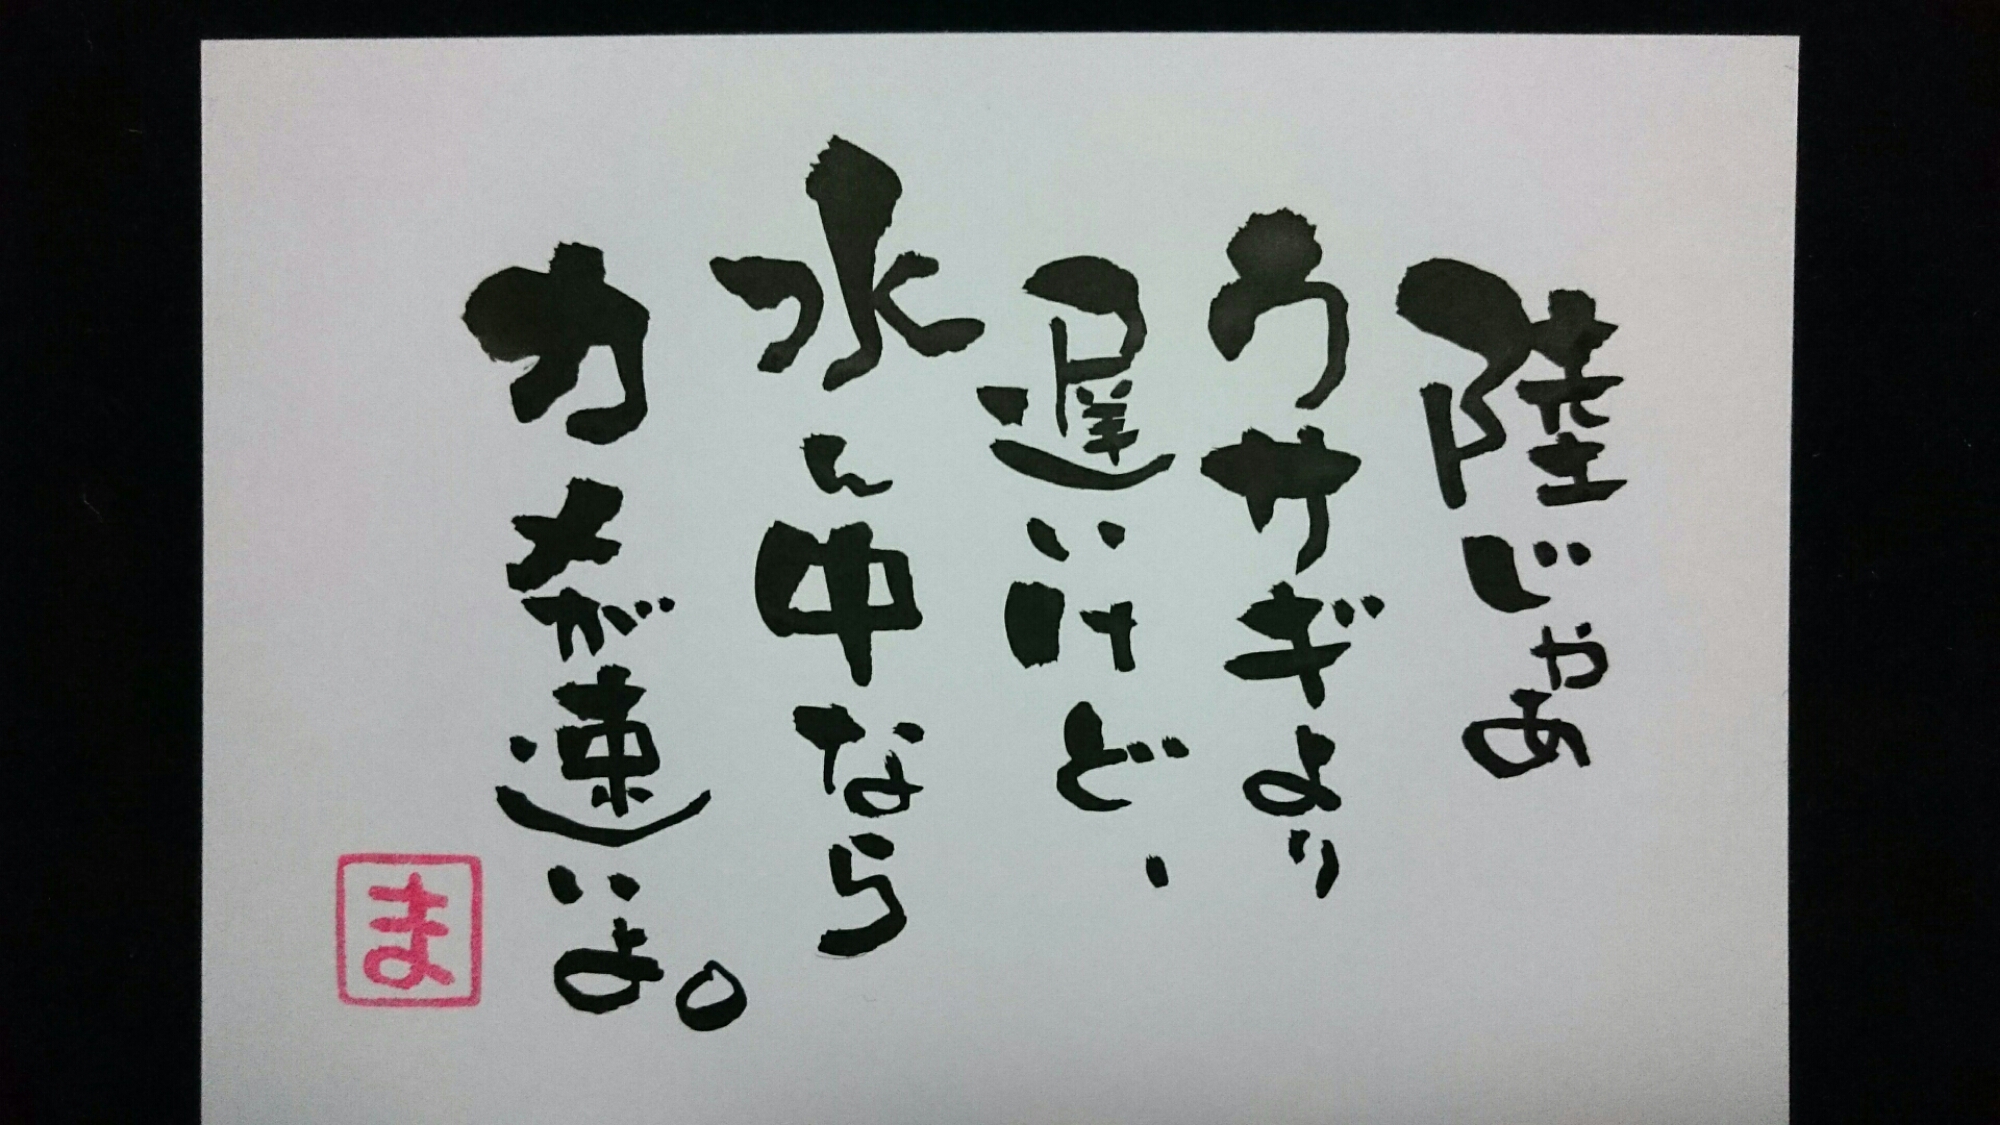 陸じゃあ
ウサギより
遅いけど、
水ん中なら
カメが速いよ。
ま